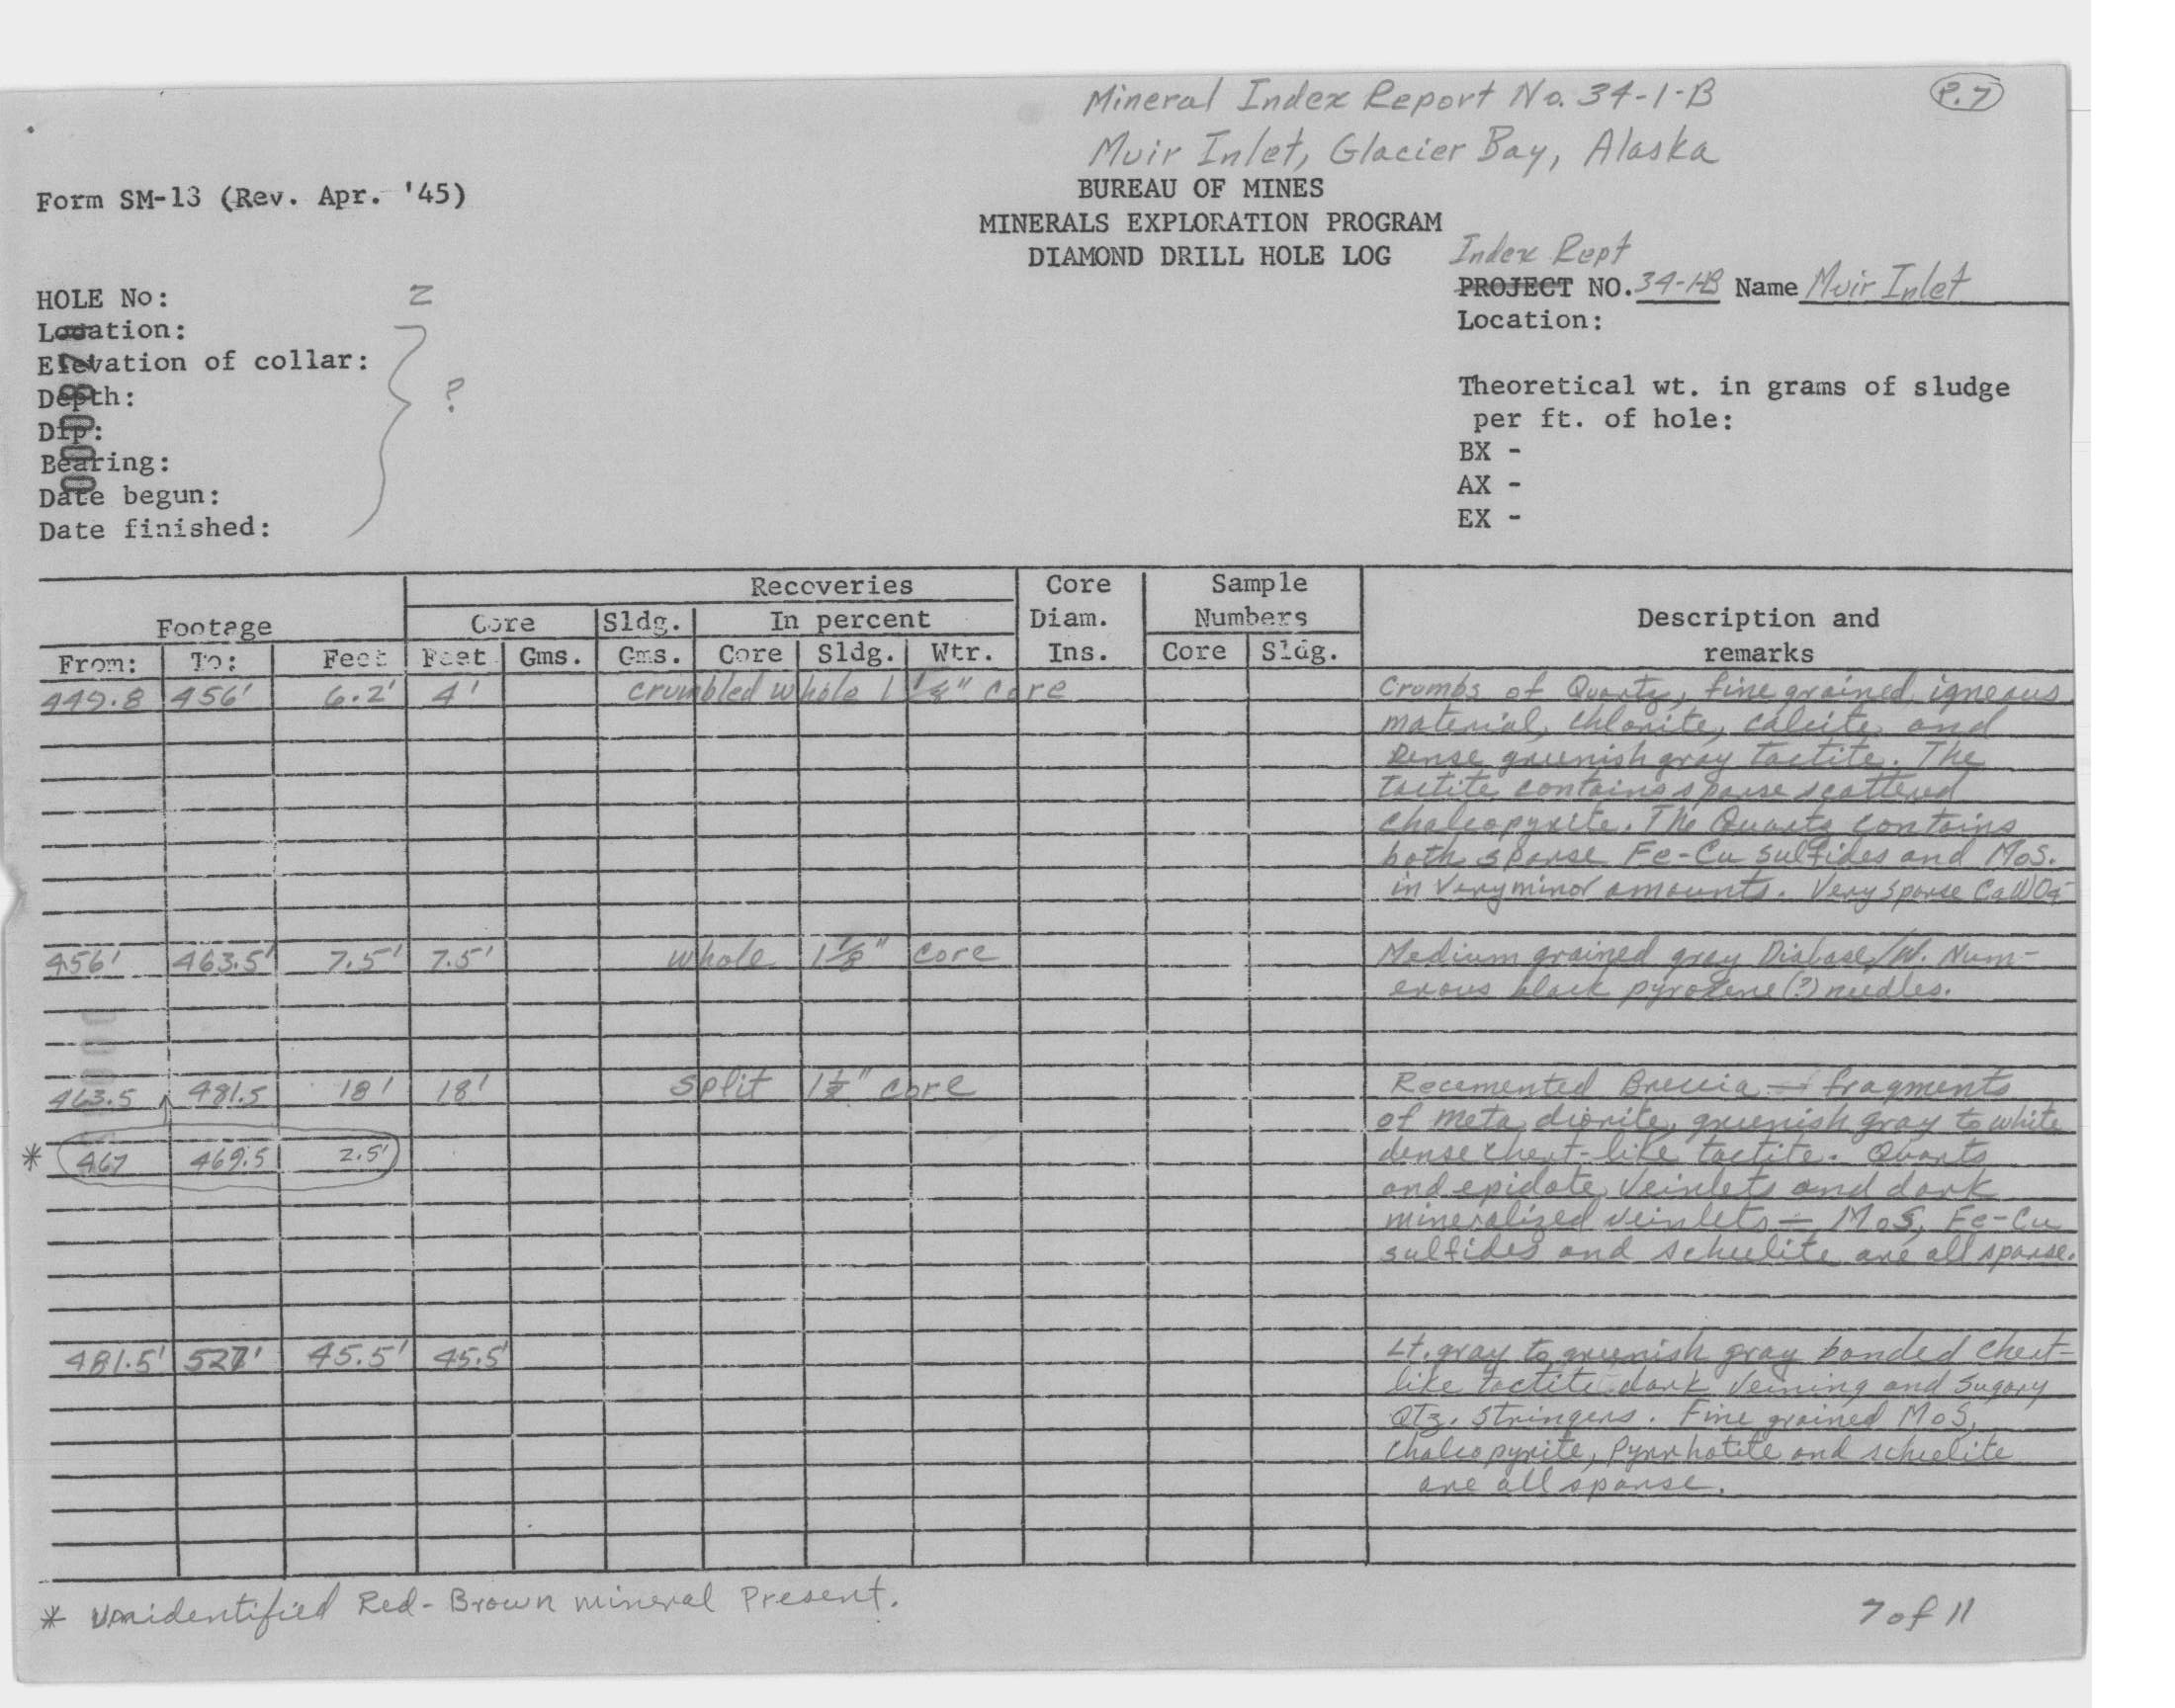 Mineral Index Report No. 34-1-B
P. 7
Muir Inlet, Glacier Bay, Alaska
Form SM-13 (Rev. Apr. '45)
BUREAU OF MINES
MINERALS EXPLORATION PROGRAM
DIAMOND DRILL HOLE LOG
Index Rept
PROJECT NO. 34-1-B Name Muir Inlet
Location:
HOLE No: 2
Location:
Elevation of collar:
Depth:
Dip:
Bearing:
Date begun:
Date finished:
?
Theoretical wt. in grams of sludge
per ft. of hole:
BX -
AX -
EX -
Footage Recoveries Core Diam. Ins. Sample Numbers Description and remarks
Core Sldg. In percent
From: To: Feet Feet Gms. Gms. Core Sldg. Wtr. Core Sldg.
449.8 456' 6.2' 4' crumbled whole 1 1/8" core Crumbs of Quartz, fine grained igneous
material, chlorite, calcite and
dense greenish gray tactite. The
tactite contains sparse scattered
chalcopyrite. The Quartz contains
both sparse Fe-Cu sulfides and MoS.
in Very minor amounts. Very sparse CaWO4
456' 463.5' 7.5' 7.5' whole 1 1/8" core Medium grained gray Diabase/W. Num-
erous black pyroxene (?) needles.
463.5 481.5 18' 18' split 1 1/8" core Recemented Breccia — fragments
of meta diorite, greenish gray to white
* 467 469.5 2.5' dense chert-like tactite. Quarts
and epidote veinlets and dark
mineralized veinlets — MoS, Fe-Cu
sulfides and scheelite are all sparse.
481.5' 527' 45.5' 45.5' Lt. gray to greenish gray banded chert-
like tactite dark veining and Sugary
Qtz. Stringers. Fine grained MoS,
chalcopyrite, Pyrrhotite and scheelite
are all sparse.
* Unidentified Red-Brown mineral Present.
7 of 11